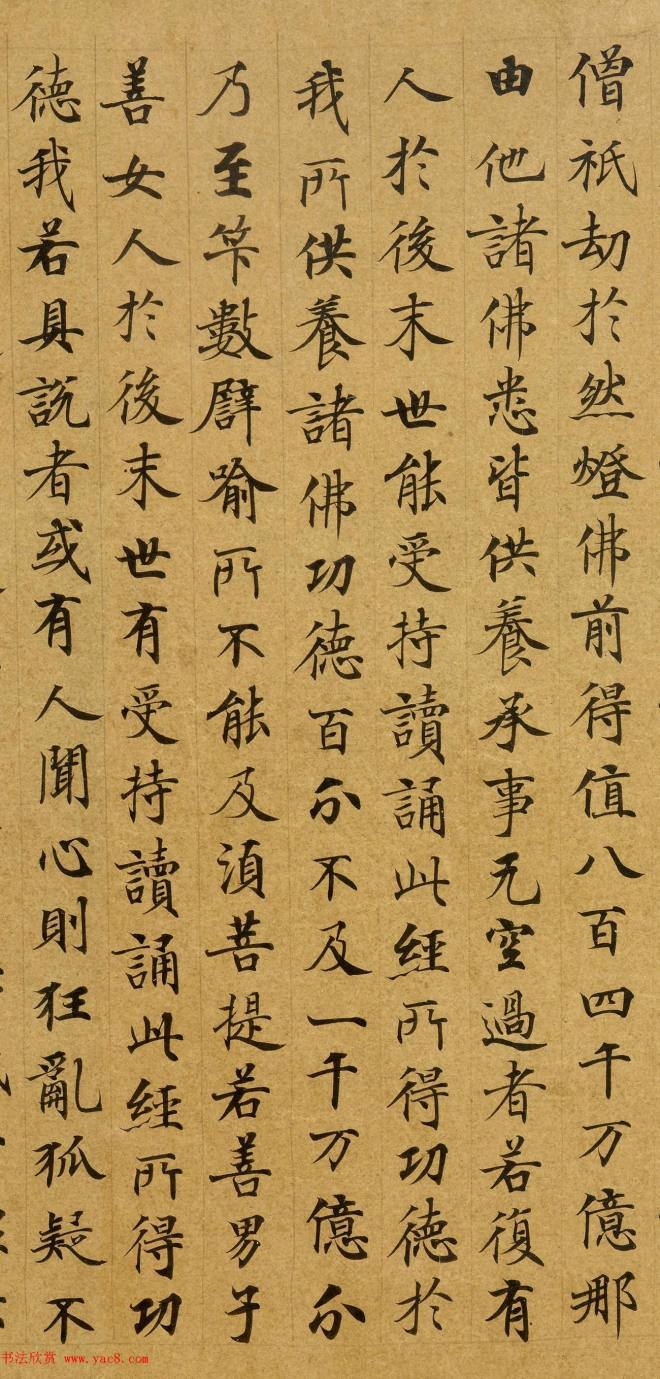 僧祇劫於然燈佛前得值八百四千万億那
由他諸佛悉皆供養承事无空過者若復有
人於後末世能受持讀誦此經所得功德於
我所供養諸佛功德百分不及一千万億分
乃至笇數譬喻所不能及湏菩提若善男子
善女人於後末世有受持讀誦此經所得功
德我若具説者或有人聞心則狂亂狐疑不
书法欣赏 www.yac8.com